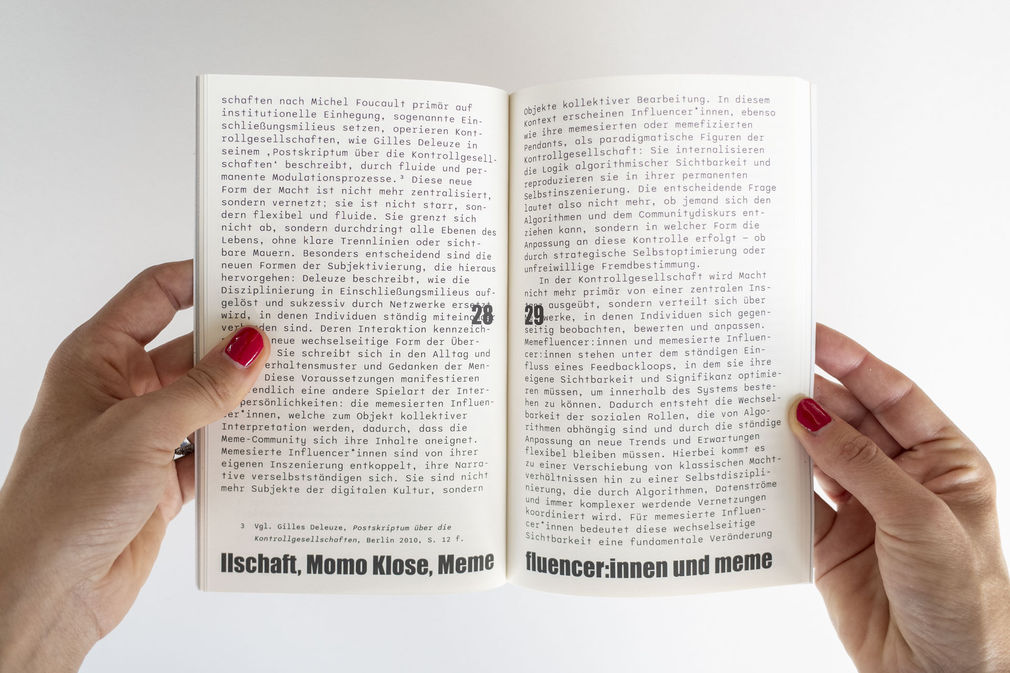 schaften nach Michel Foucault primär auf
institutionelle Einhegung, sogenannte Ein-
schließungsmilieus setzen, operieren Kont-
rollgesellschaften, wie Gilles Deleuze in
seinem ‚Postskriptum über die Kontrollgesell-
schaften‘ beschreibt, durch fluide und per-
manente Modulationsprozesse.³ Diese neue
Form der Macht ist nicht mehr zentralisiert,
sondern vernetzt; sie ist nicht starr, son-
dern flexibel und fluide. Sie grenzt sich
nicht ab, sondern durchdringt alle Ebenen des
Lebens, ohne klare Trennlinien oder sicht-
bare Mauern. Besonders entscheidend sind die
neuen Formen der Subjektivierung, die hieraus
hervorgehen: Deleuze beschreibt, wie die
Disziplinierung in Einschließungsmilieus auf-
gelöst und sukzessiv durch Netzwerke ersetzt
wird, in denen Individuen ständig miteinander
verbunden sind. Deren Interaktion kennzeich-
neue wechselseitige Form der Über-
Sie schreibt sich in den Alltag und
erhaltensmuster und Gedanken der Men-
Diese Voraussetzungen manifestieren
endlich eine andere Spielart der Inter-
persönlichkeiten: die memesierten Influen-
cer*innen, welche zum Objekt kollektiver
Interpretation werden, dadurch, dass die
Meme-Community sich ihre Inhalte aneignet.
Memesierte Influencer*innen sind von ihrer
eigenen Inszenierung entkoppelt, ihre Narra-
tive verselbstständigen sich. Sie sind nicht
mehr Subjekte der digitalen Kultur, sondern
3 Vgl. Gilles Deleuze, Postskriptum über die
Kontrollgesellschaften, Berlin 2010, S. 12 f.
28
llschaft, Momo Klose, Meme
Objekte kollektiver Bearbeitung. In diesem
Kontext erscheinen Influencer*innen, ebenso
wie ihre memesierten oder memefizierten
Pendants, als paradigmatische Figuren der
Kontrollgesellschaft: Sie internalisieren
die Logik algorithmischer Sichtbarkeit und
reproduzieren sie in ihrer permanenten
Selbstinszenierung. Die entscheidende Frage
lautet also nicht mehr, ob jemand sich den
Algorithmen und dem Communitydiskurs ent-
ziehen kann, sondern in welcher Form die
Anpassung an diese Kontrolle erfolgt – ob
durch strategische Selbstoptimierung oder
unfreiwillige Fremdbestimmung.
In der Kontrollgesellschaft wird Macht
nicht mehr primär von einer zentralen Ins-
tanz ausgeübt, sondern verteilt sich über
Netzwerke, in denen Individuen sich gegen-
seitig beobachten, bewerten und anpassen.
Memefluencer:innen und memesierte Influen-
cer:innen stehen unter dem ständigen Ein-
fluss eines Feedbackloops, in dem sie ihre
eigene Sichtbarkeit und Signifikanz optimie-
ren müssen, um innerhalb des Systems beste-
hen zu können. Dadurch entsteht die Wechsel-
barkeit der sozialen Rollen, die von Algo-
rithmen abhängig sind und durch die ständige
Anpassung an neue Trends und Erwartungen
flexibel bleiben müssen. Hierbei kommt es
zu einer Verschiebung von klassischen Macht-
verhältnissen hin zu einer Selbstdiszipli-
nierung, die durch Algorithmen, Datenströme
und immer komplexer werdende Vernetzungen
koordiniert wird. Für memesierte Influen-
cer*innen bedeutet diese wechselseitige
Sichtbarkeit eine fundamentale Veränderung
29
fluencer:innen und meme